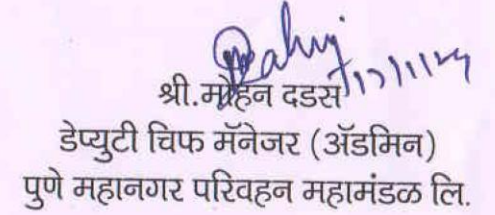 श्री.मोहन दडस
डेप्युटी चिफ मॅनेजर (ॲडमिन)
पुणे महानगर परिवहन महामंडळ लि.